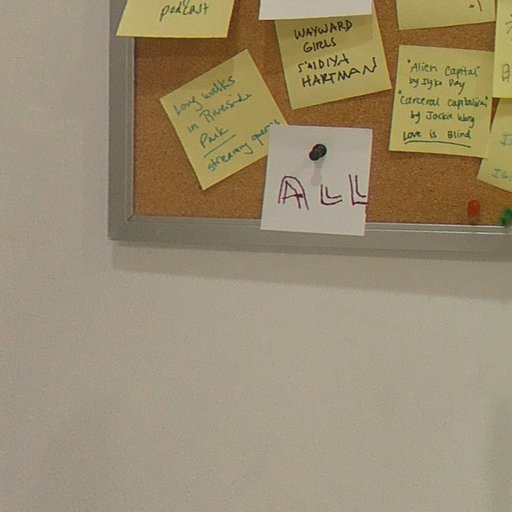 podcast
WAYWARD
GIRLS
S'AIDIYA
HARTMAN
"Alien Capital"
by Iyko Day
"Carceral Capitalism"
by Jackie Wang
Love is Blind
Long walks
in Riverside
Park
streaming
ALL